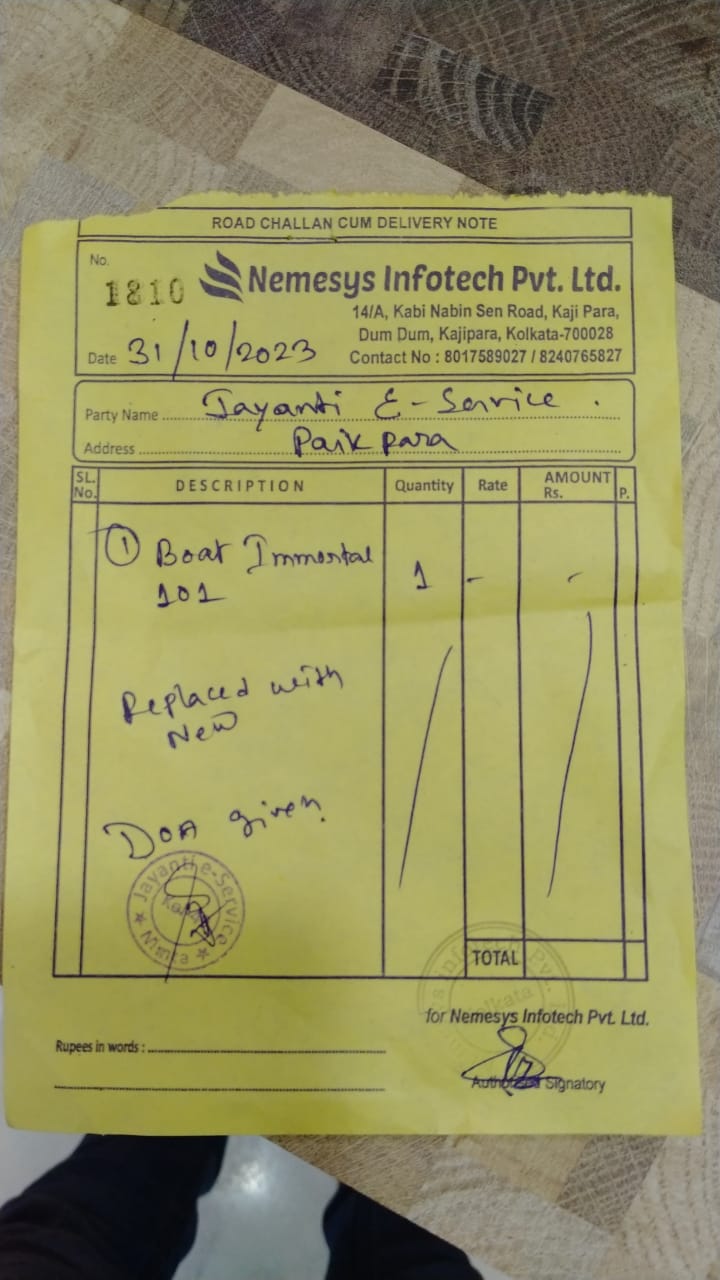 ROAD CHALLAN CUM DELIVERY NOTE
No.
1810
Nemesys Infotech Pvt. Ltd.
14/A, Kabi Nabin Sen Road, Kaji Para,
Dum Dum, Kajipara, Kolkata-700028
Date 31/10/2023
Contact No : 8017589027 / 8240765827
Party Name Jayanti E-Service .
Address Paikpara
SL. No. DESCRIPTION Quantity Rate AMOUNT Rs. P.
① Boat Immortal 1 - -
101
Replaced with
New
DOA given
Jayanti e-Service
TOTAL
for Nemesys Infotech Pvt. Ltd.
Rupees in words :
Authorised Signatory